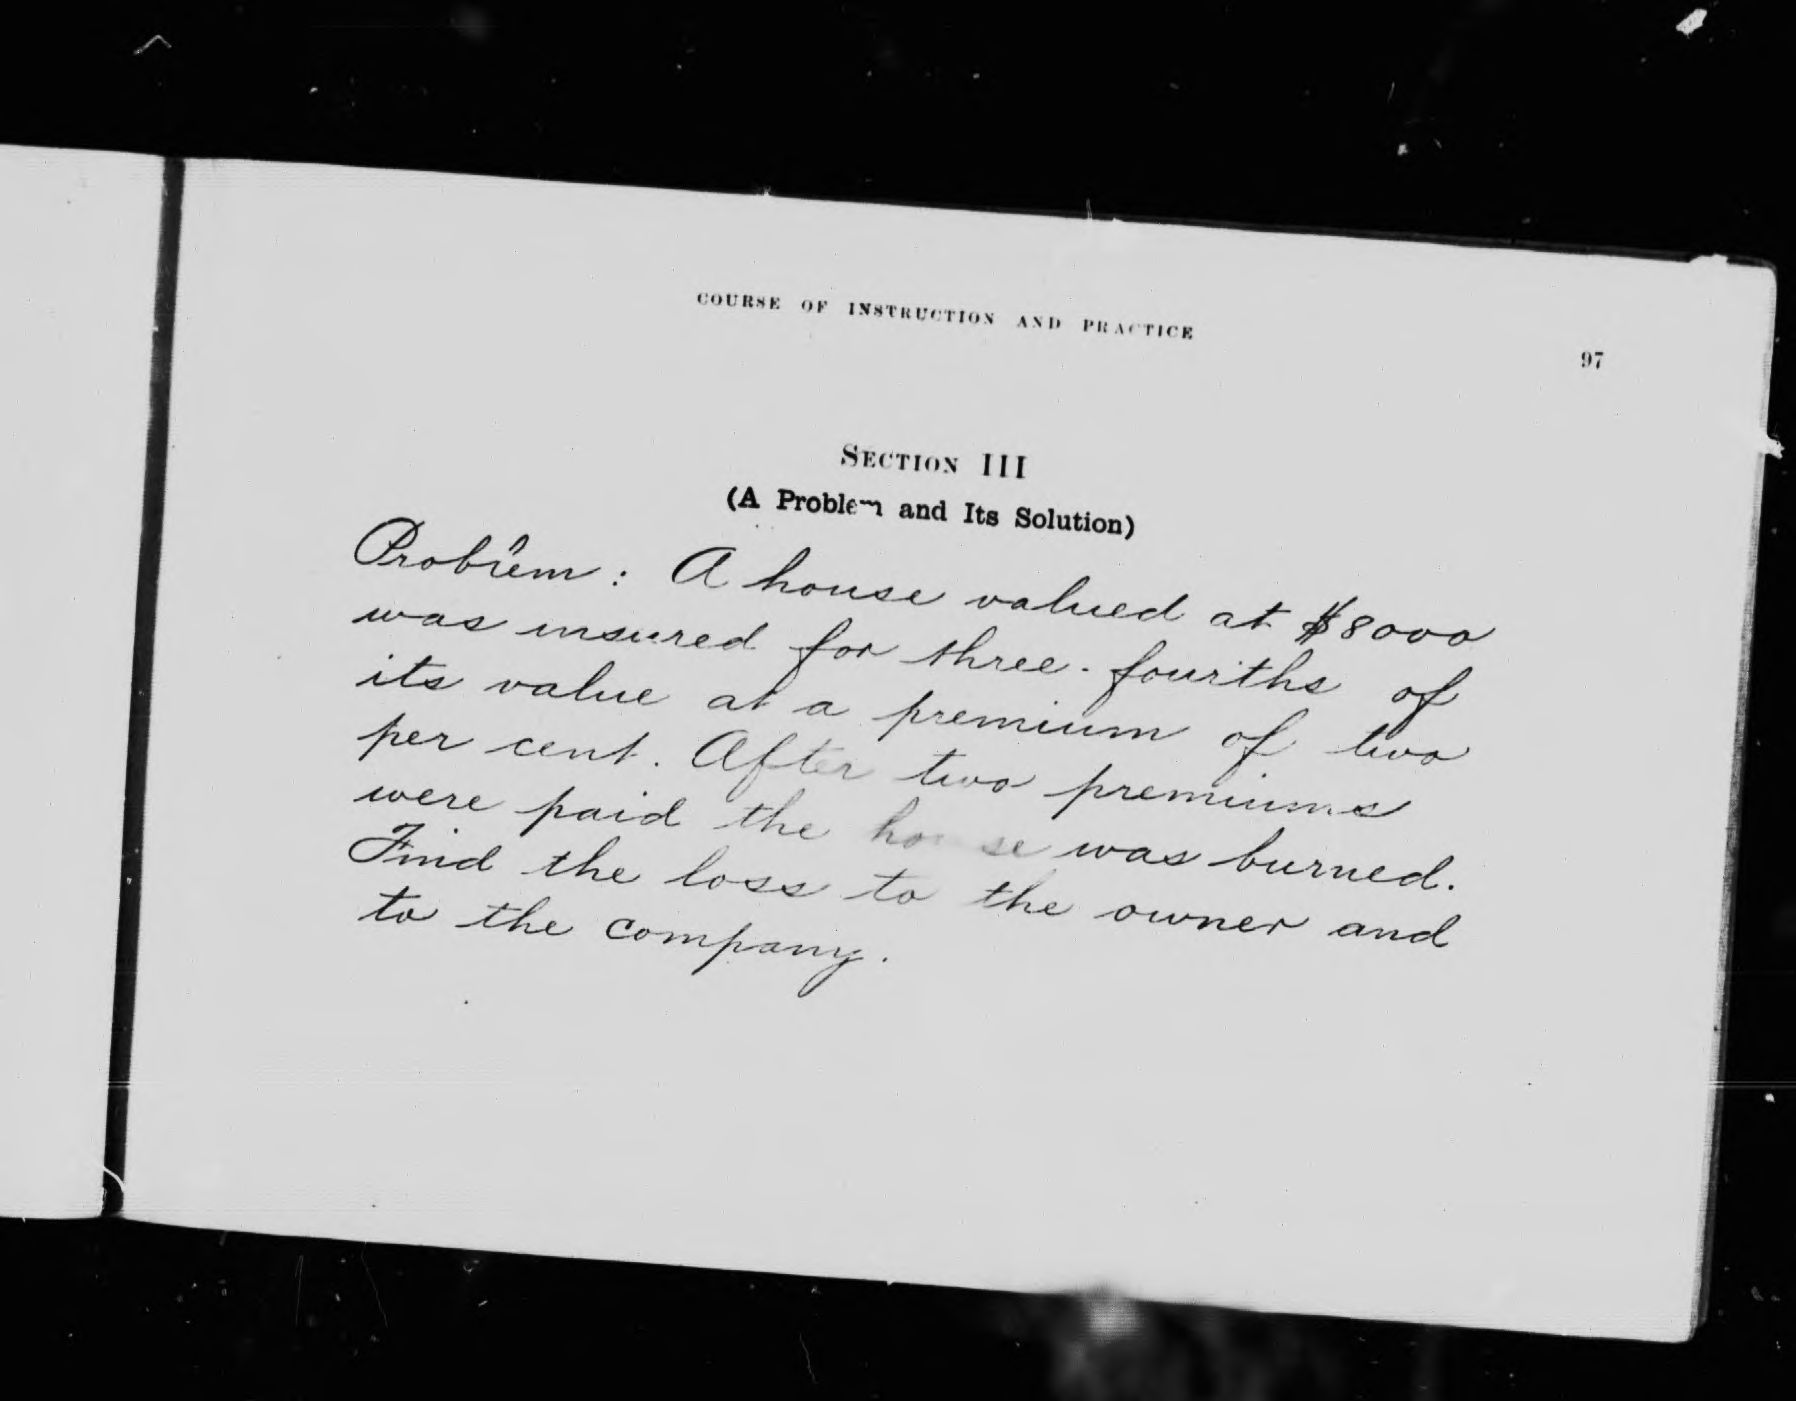 COURSE OF INSTRUCTION AND PRACTICE
97
SECTION III
(A Problem and Its Solution)
Problem: A house valued at $8000
was insured for three-fourths of
its value at a premium of two
per cent. After two premiums
were paid the house was burned.
Find the loss to the owner and
to the company.